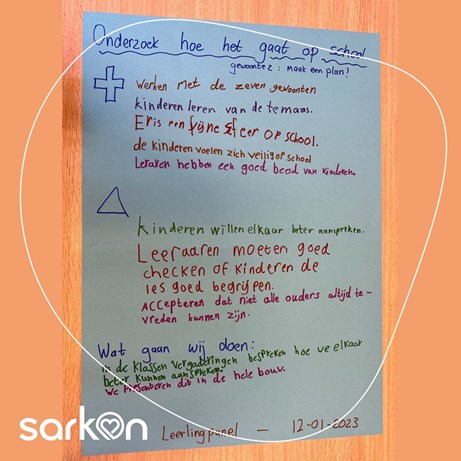 Onderzoek hoe het gaat op school
gewoonte 2 : maak een plan!
Werken met de zeven gewoonten
kinderen leren van de temaas.
Er is een fijne sfeer op school.
de kinderen voelen zich veilig op school
Leraren hebben een goed beod van kinderen.
kinderen willen elkaar beter aanspreken.
Leeraaren moeten goed
checken of kinderen de
les goed begrijpen.
Accepteren dat niet alle ouders altijd te-
vreden kunnen zijn.
Wat gaan wij doen:
in de klassen vergaderingen bespreken hoe we elkaar
beter kunnen aanspreken.
We presenteren dit in de hele bouw.
Leerlingpanel — 12-01-2023
sarkon